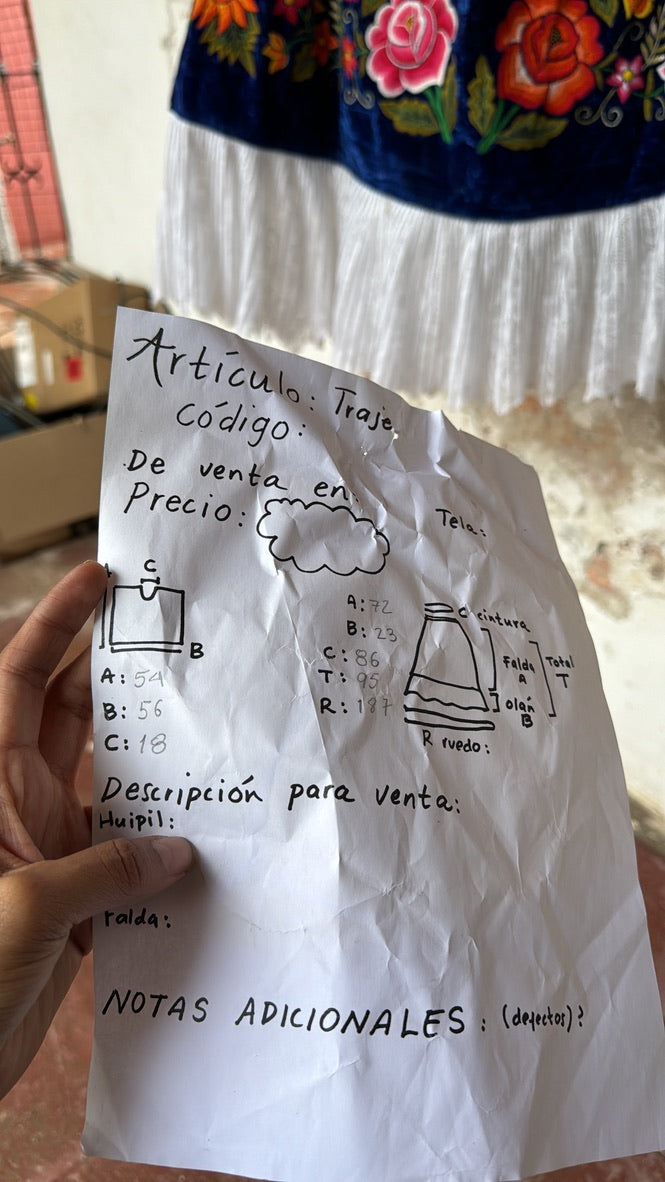 Artículo: Traje
código:
De venta en:
Precio:
Tela:
C
B
A: 54
B: 56
C: 18
A: 72
B: 23
C: 86
T: 95
R: 187
C cintura
Falda
A
Total
T
olán
B
R ruedo:
Descripción para venta:
Huipil:
Falda:
NOTAS ADICIONALES: (defectos)?